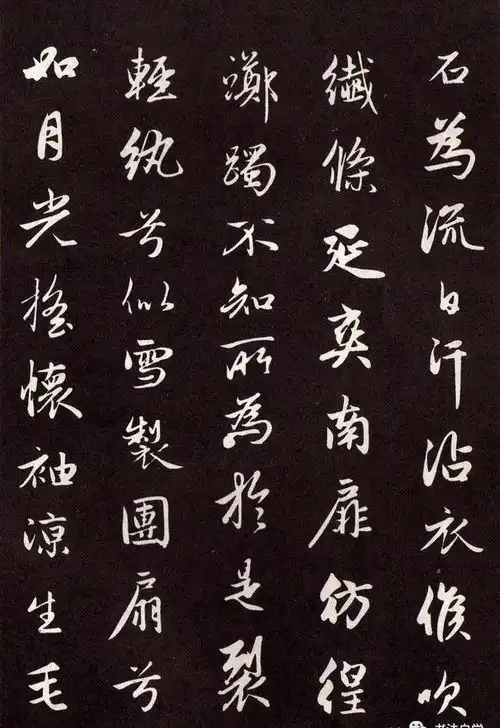 石為流日汗沾衣候吹
纖條延爽南扉彷徨
躑躅不知所為於是裂
輕紈兮似雪製團扇兮
如月光搖懷袖凉生毛